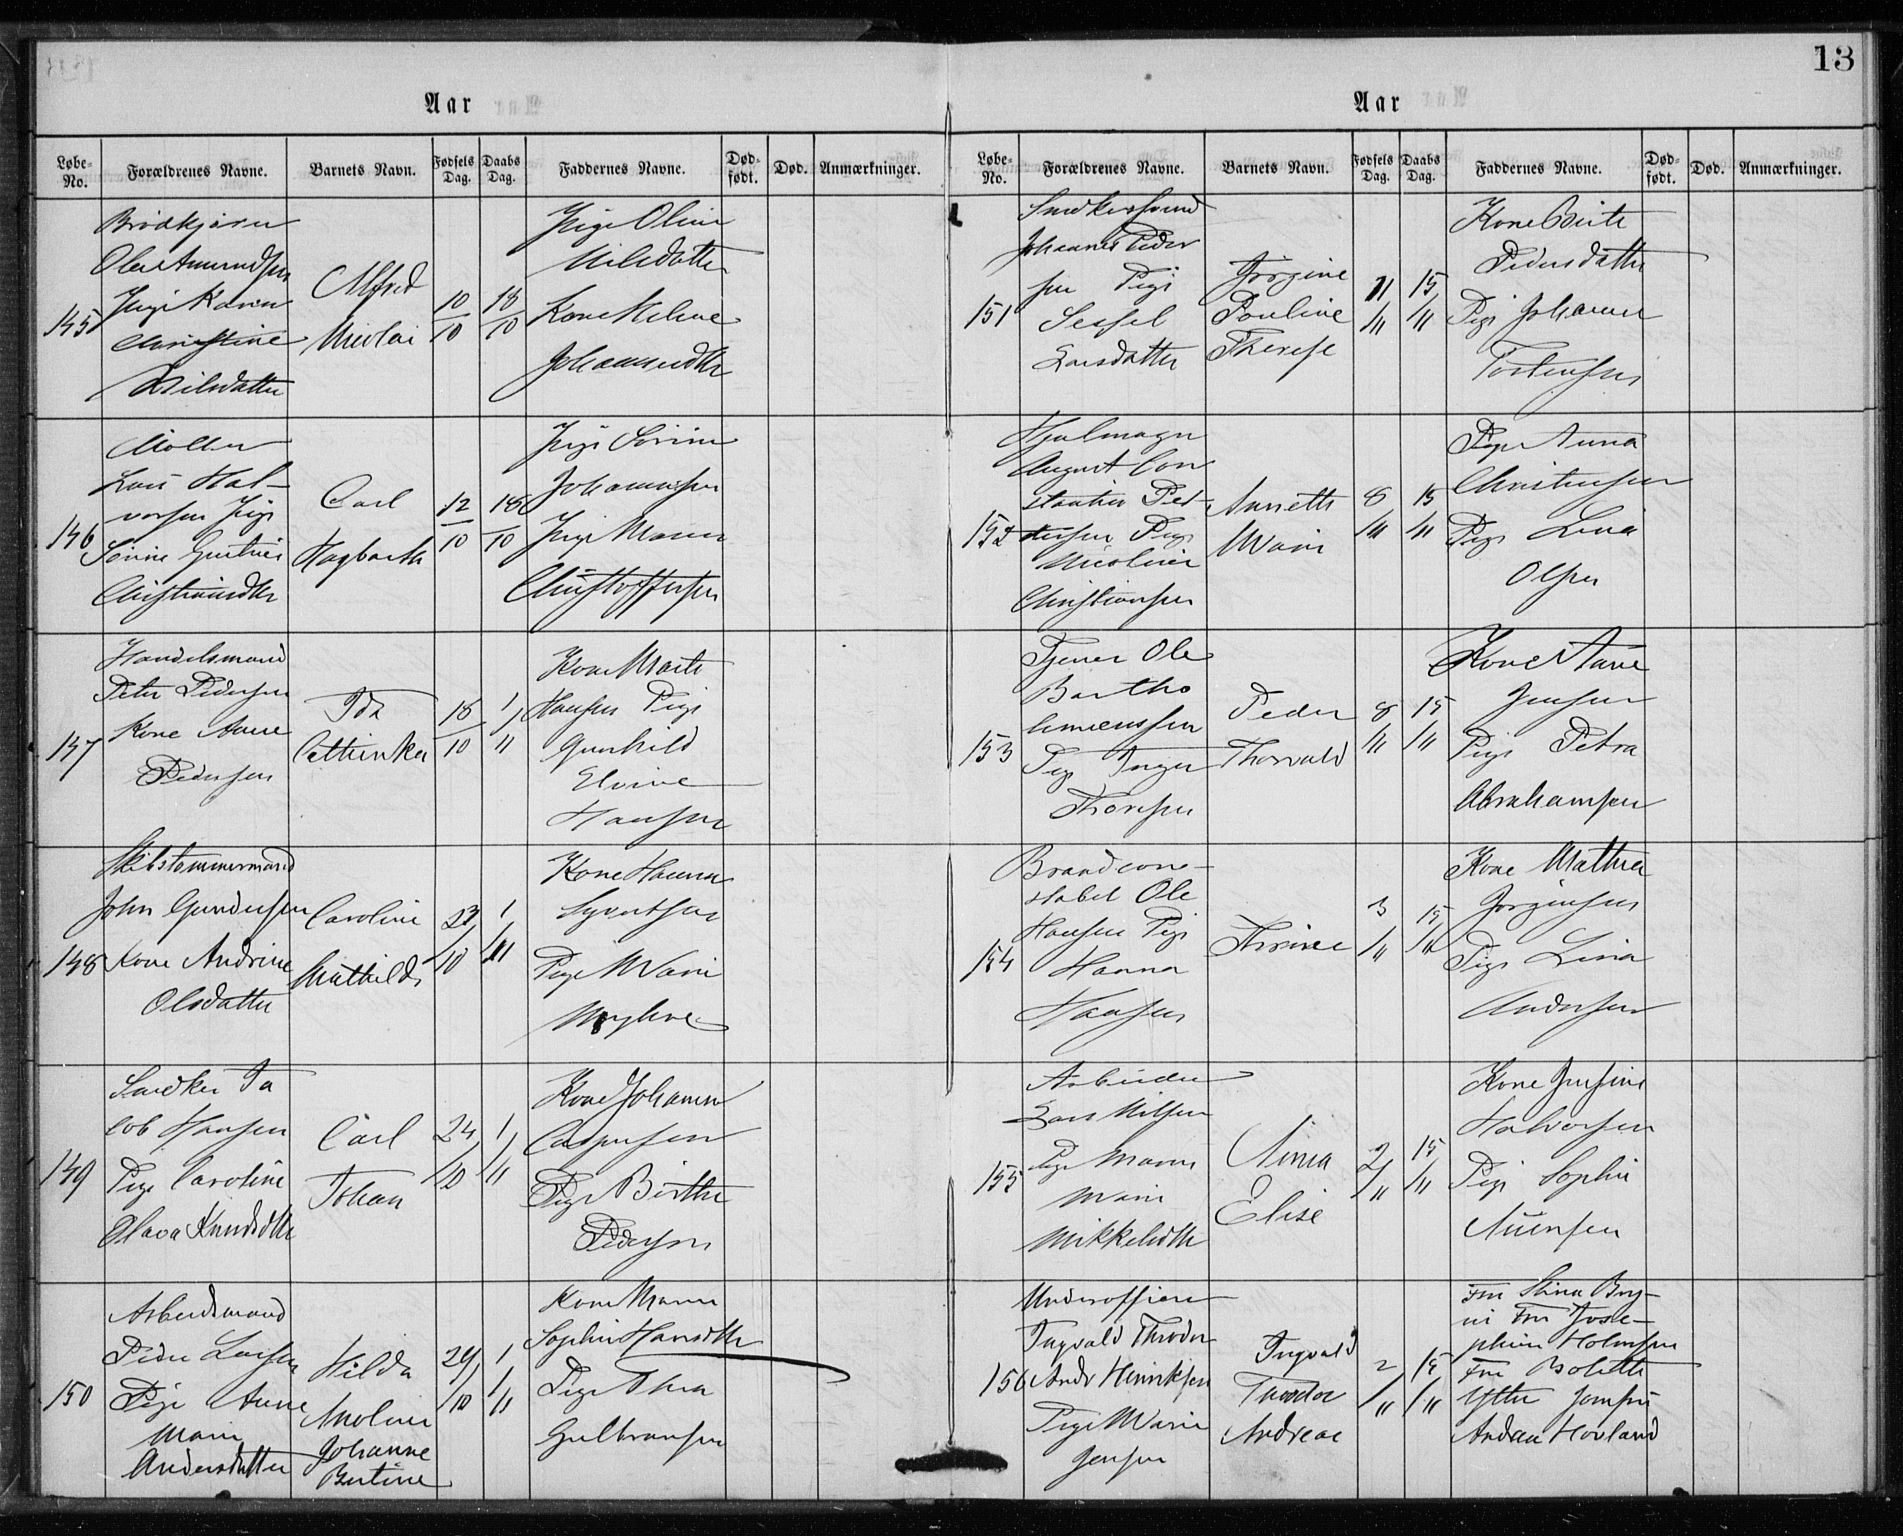 13
Aar
Løbe-No.
Forældrenes Navne.
Barnets Navn.
Fødsels Dag.
Daabs Dag.
Faddernes Navne.
Død-født.
Død.
Anmærkninger.
145
Brødkjører
Ole Amundsen
Pige Karen
Christine
Nilsdatter
Alfred
Nicolai
10/10
18/10
Pige Oline
Nilsdatter
Kone Helene
Johannesdtr
146
Møller
Lars Hal-
vorsen Pige
Sørine
Christiansdtr
Carl
Hagbarth
12/10
18/10
Pige Sørine
Johannessen
Pige Maren
Christoffersen
147
Handelsmand
Peter Pedersen
Kone Anne
Pedersen
Ida
Cathinka
18/10
1/11
Kone Marte
Hansen Pige
Gunhild
Elvine
Hansen
148
Skibstømmermand
John Gundersen
Kone Andrine
Olsdatter
Caroline
Mathilde
23/10
1/11
Kone Hanna
Syvertsen
Pige Marie
Myhre
149
Snedker Ja
cob Hansen
Pige Caroline
Olava Knudsdtr
Carl
Johan
24/10
1/11
Kone Johanne
Caspersen
Pige Birthe
Pedersen
150
Arbeidsmand
Peder Larsen
Pige Anne
Marie
Andersdatter
Hilda
Nicoline
Johanne
Bertine
29/10
1/11
Kone Maren
Sophie Hansdtr
Pige Thea
Gulbransen
Aar
Løbe-No.
Forældrenes Navne.
Barnets Navn.
Fødsels Dag.
Daabs Dag.
Faddernes Navne.
Død-født.
Død.
Anmærkninger.
151
Snedkersvend
Johannes Peder
sen Pige
Sessel
Larsdatter
Jørgine
Pauline
Therese
11/11
15/11
Kone Berte
Pedersdatter
Pige Johanne
Torstensen
152
Hjulmager
August Con
stantin Pet-
tersen Pige
Nicoline
Christiansen
Annette
Marie
8/11
15/11
Pige Anna
Christensen
Pige Lina
Olsen
153
Tjener Ole
Bartho
lomeussen
Pige Inger
Thoresen
Peder
Thorvald
8/11
15/11
Kone Anne
Jensen
Pige Petra
Abrahamsen
154
Brandcon-
stabel Ole
Hansen Pige
Hanna
Hansen
3/11
15/11
Kone Mathea
Jørgensen
Pige Lina
Andersen
155
Arbeider
Lars Nilsen
Pige Maren
Marie
Mikkelsdtr
Anna
Elise
2/11
15/11
Kone Josefine
Halvorsen
Pige Sophie
156
Underofficer
Ingvald Theodor
Andr Henriksen
Pige Marie
Jensen
Ingvald
Theodor
Andreas
2/11
15/11
Fru Stina Bry-
ni Fru Jose-
phine Holmsen
Fru Bolette
Andrea Hovland